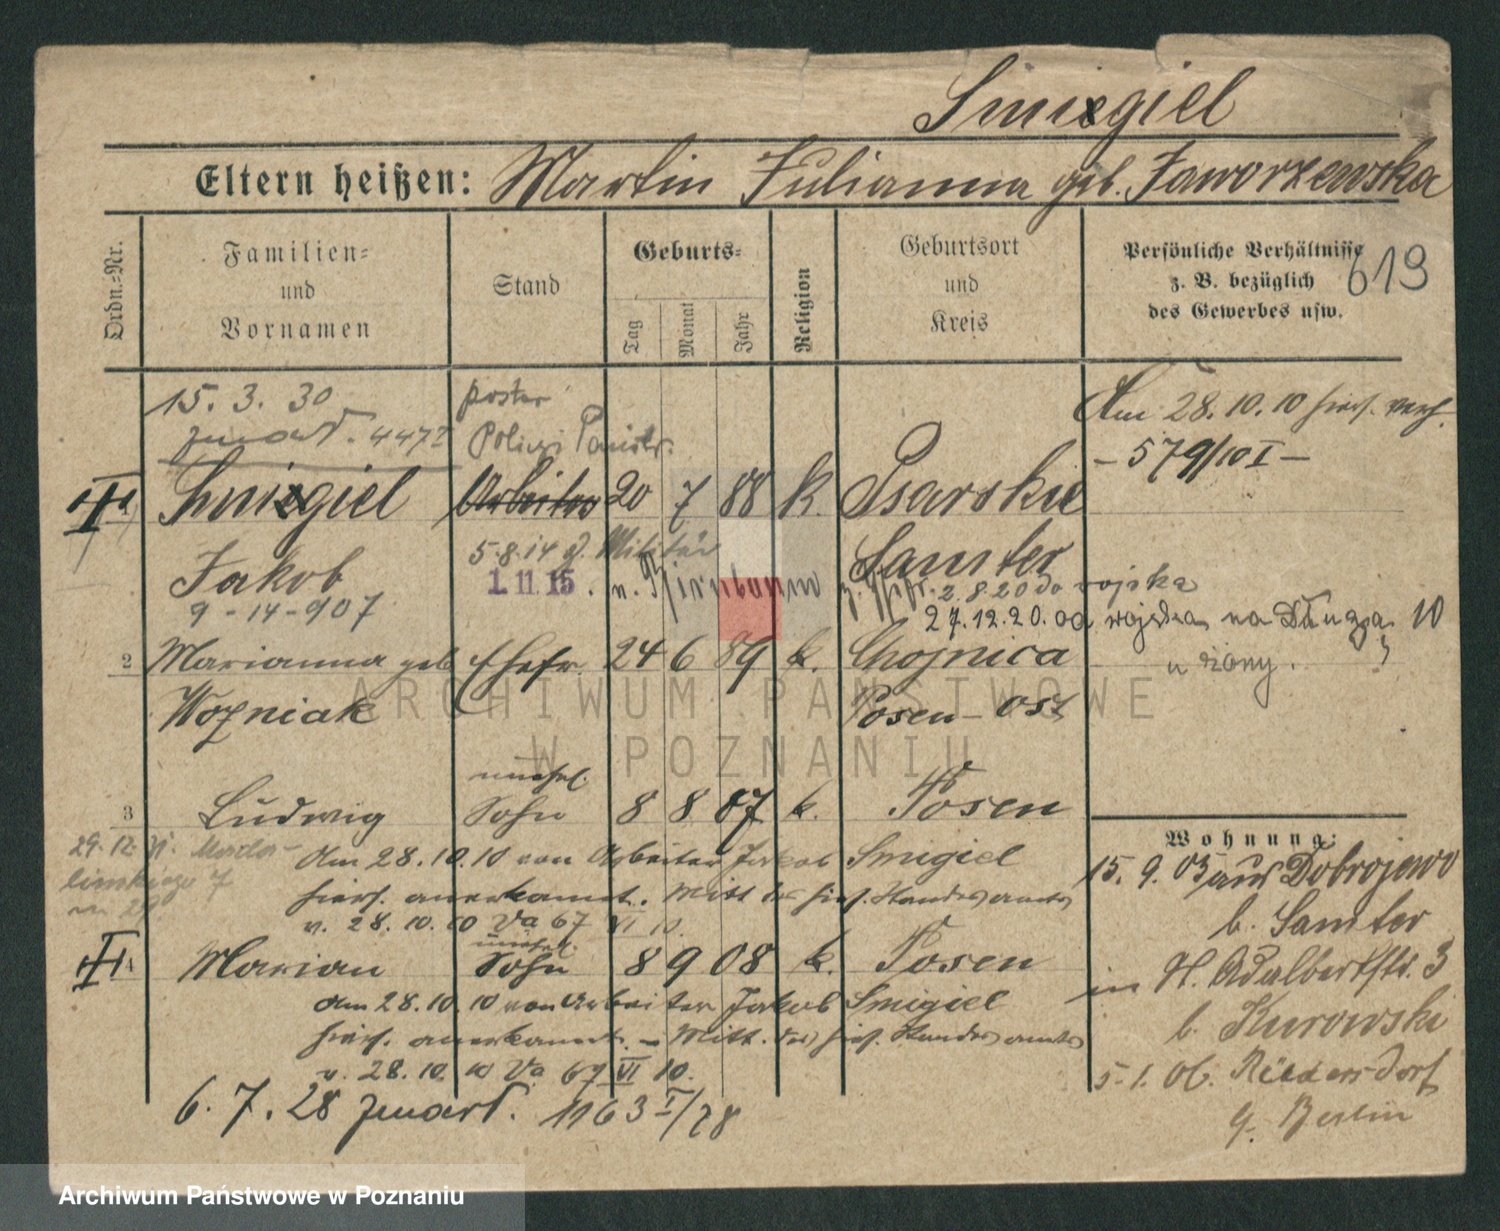 Smigiel
Eltern heißen: Martin Julianna geb. Jaworzewska
Ordn.-Nr.
Familien-
und
Vornamen
Stand
Geburts-
Tag
Monat
Jahr
Religion
Geburtsort
und
Kreis
Persönliche Verhältnisse
z. B. bezüglich
des Gewerbes usw.
619
15. 3. 30
zmarł. 447 I
poster
Policji
Am 28.10.10 hies. verh.
- 579/10 I -
Smigiel Arbeiter 20 7 88 k. Psarskie
5.8.14 z. Militär
Jakob Samter
1.11.15. n. Birnbaum
2.8.20 do wojska
9-14-907
27.12.20. od wojska na Długa 10
u żony.
2 Marianna geb. Ehefr. 24 6 89 k. Chojnica
Wozniak Posen-Ost
unehel.
3 Ludwig Sohn 8 8 07 k. Posen
29.12.
am 28.10.10 von Arbeiter Jakob Smigiel
hies. anerkannt. Mitt. des hies. Standesamts
v. 28.10.10 Va 67 VI 10.
unehel.
Marian Sohn 8 9 08 k. Posen
am 28.10.10 von Arbeiter Jakob Smigiel
hies. anerkannt. - Mitt. des hies. Standesamts
v. 28.10.10 Va 67 VI 10.
6. 7. 28 zmarł. 1163 I/28
Wohnung:
15. 9. 05 aus Dobrojewo
b. Samter
in H. Adalbertstr. 3
b. Kurowski
5.1.06. Rüdersdorf
b. Berlin
ARCHIWUM PAŃSTWOWE
W POZNANIU
Archiwum Państwowe w Poznaniu